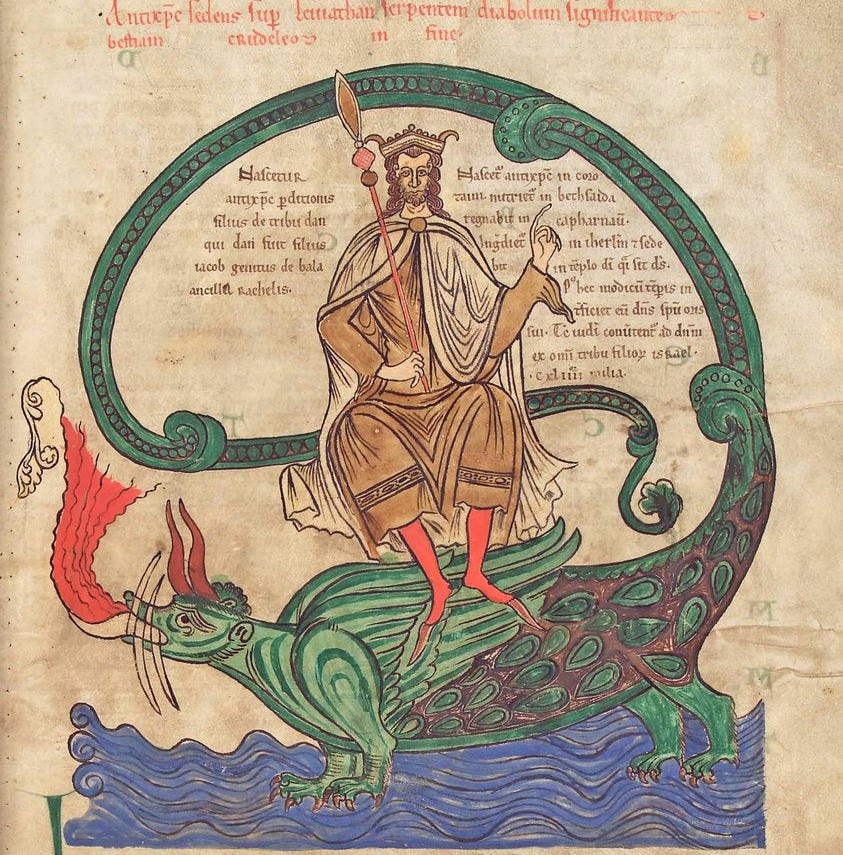 Antixp̄c sedens sup̄ leuiathan serpentem diabolum significantē
bestiam crudelē in fine.
Nascetur
antixp̄c p̄ditionis
filius de tribu dan
qui dan fuit filius
iacob genitus de bala
ancilla rachelis.
Nascet̄ antixp̄c in coro
zaim. nutriet̄ in bethsaida
regnabit in capharnaū.
Ingdiet̄ in iherlm̄ ⁊ sede
bit in tēplo dī q̄i sit dš.
hec modicū tēp̄is in
t̄ficiet eū dn̄s sp̄u oris
sui. Tc̄ iudi conūtent̄ ad dnm̄
ex omī tribu filioꝝ israel.
c xl iiii milia.